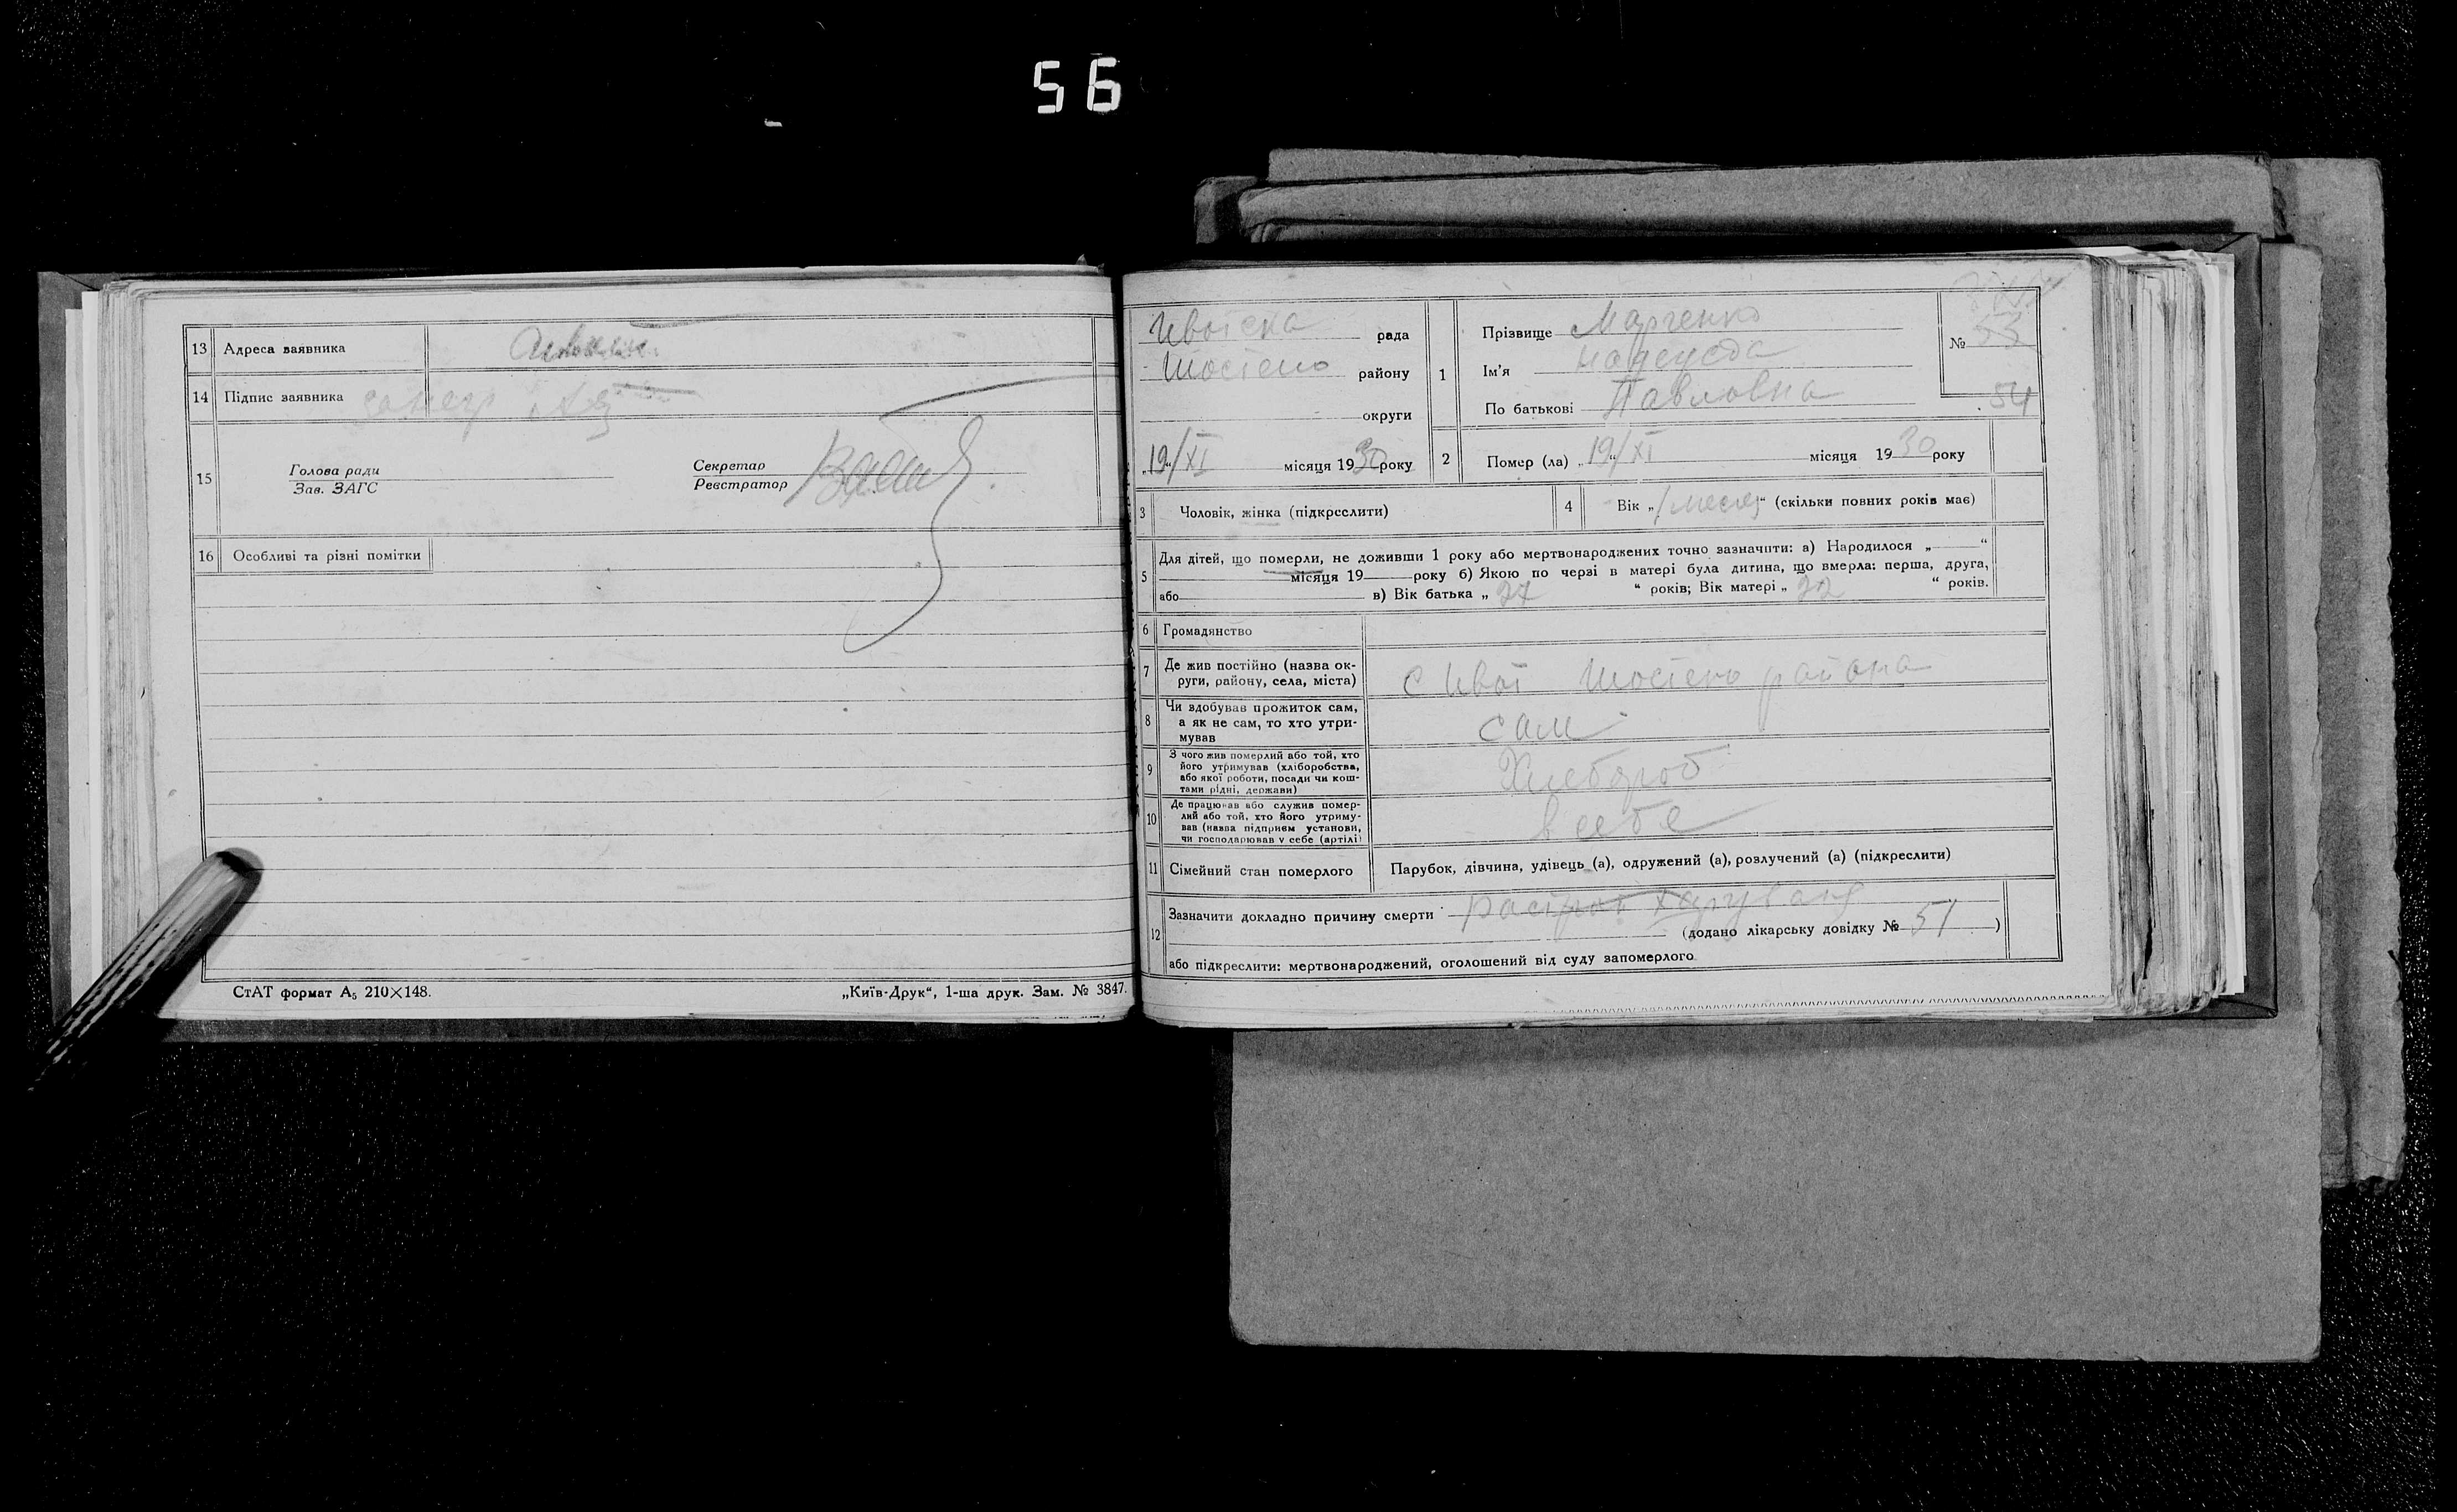 56
13 Адреса заявника
14 Підпис заявника
15 Голова ради
Зав. ЗАГС
Секретар
Реєстратор
16 Особливі та різні помітки
СтАТ формат А₅ 210×148.
„Київ-Друк“, 1-ша друк. Зам. № 3847.
Ивотска рада
району
округи
„19“/XI місяця 1930 року
1 Прізвище Марченко
Ім'я
По батькові Павловна
№ 53
54
2 Помер (ла) „19“/XI місяця 1930 року
3 Чоловік, жінка (підкреслити)
4 Вік „1 месяц“ (скільки повних років має)
5 Для дітей, що померли, не доживши 1 року або мертвонароджених точно зазначити: а) Народилося „ “
місяця 19 року б) Якою по черзі в матері була дитина, що вмерла: перша, друга,
або в) Вік батька „27 “ років; Вік матері „22 “ років.
6 Громадянство
7 Де жив постійно (назва ок-
руги, району, села, міста)
с Ивот района
8 Чи здобував прожиток сам,
а як не сам, то хто утри-
мував
сам
9 З чого жив померлий або той, хто
його утримував (хліборобства,
або якої роботи, посади чи кош-
тами рідні, держави)
Хлебороб
10 Де працював або служив помер-
лий або той, хто його утриму-
вав (назва підприєм установи,
чи господарював у себе (артілі)
в себе
11 Сімейний стан померлого
Парубок, дівчина, удівець (а), одружений (а), розлучений (а) (підкреслити)
12 Зазначити докладно причину смерти
(додано лікарську довідку № 51 )
або підкреслити: мертвонароджений, оголошений від суду запомерлого